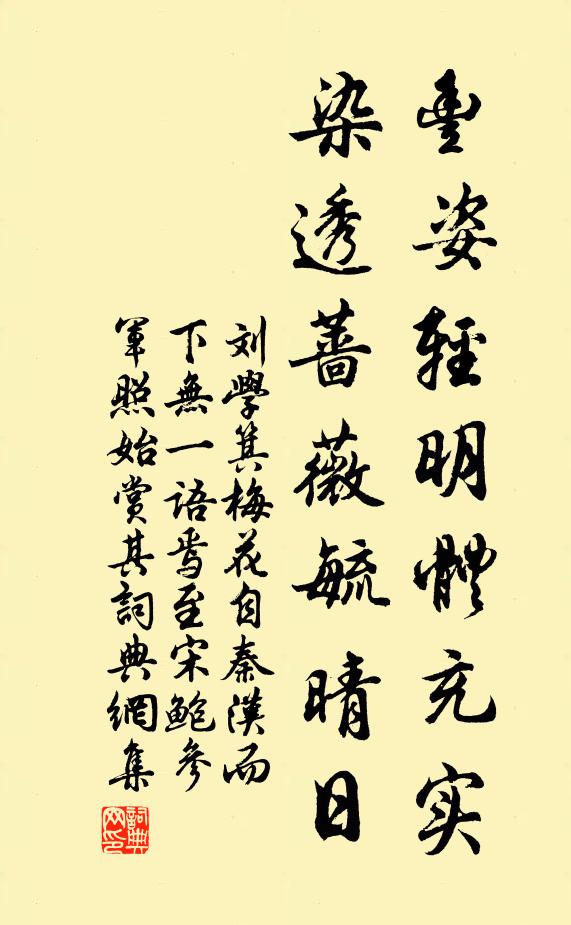 豊姿輕明體充实
染透薔薇毓晴日
刘學箕梅花自秦漢而
下無一語焉至宋鮑參
軍照始賞其詞典網集
詞典网印